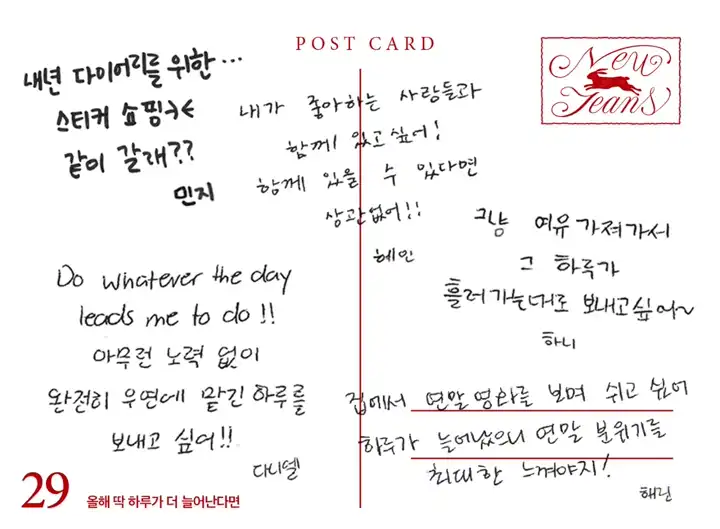 POST CARD
New
Jeans
내년 다이어리를 위한...
스티커 쇼핑→←
같이 갈래??
민지
내가 좋아하는 사람들과
함께 있고싶어!
함께 있을 수 있다면
상관없어!!
혜인
그냥 여유가져가서
그 하루가
흘러가는대로 보내고싶어~
하니
Do whatever the day
leads me to do!!
아무런 노력 없이
완전히 우연에 맡긴 하루를
보내고 싶어!!
다니엘
집에서 연말영화를 보며 쉬고 싶어
하루가 늘어났으니 연말 분위기를
최대한 느껴야지!
해린
29 올해 딱 하루가 더 늘어난다면